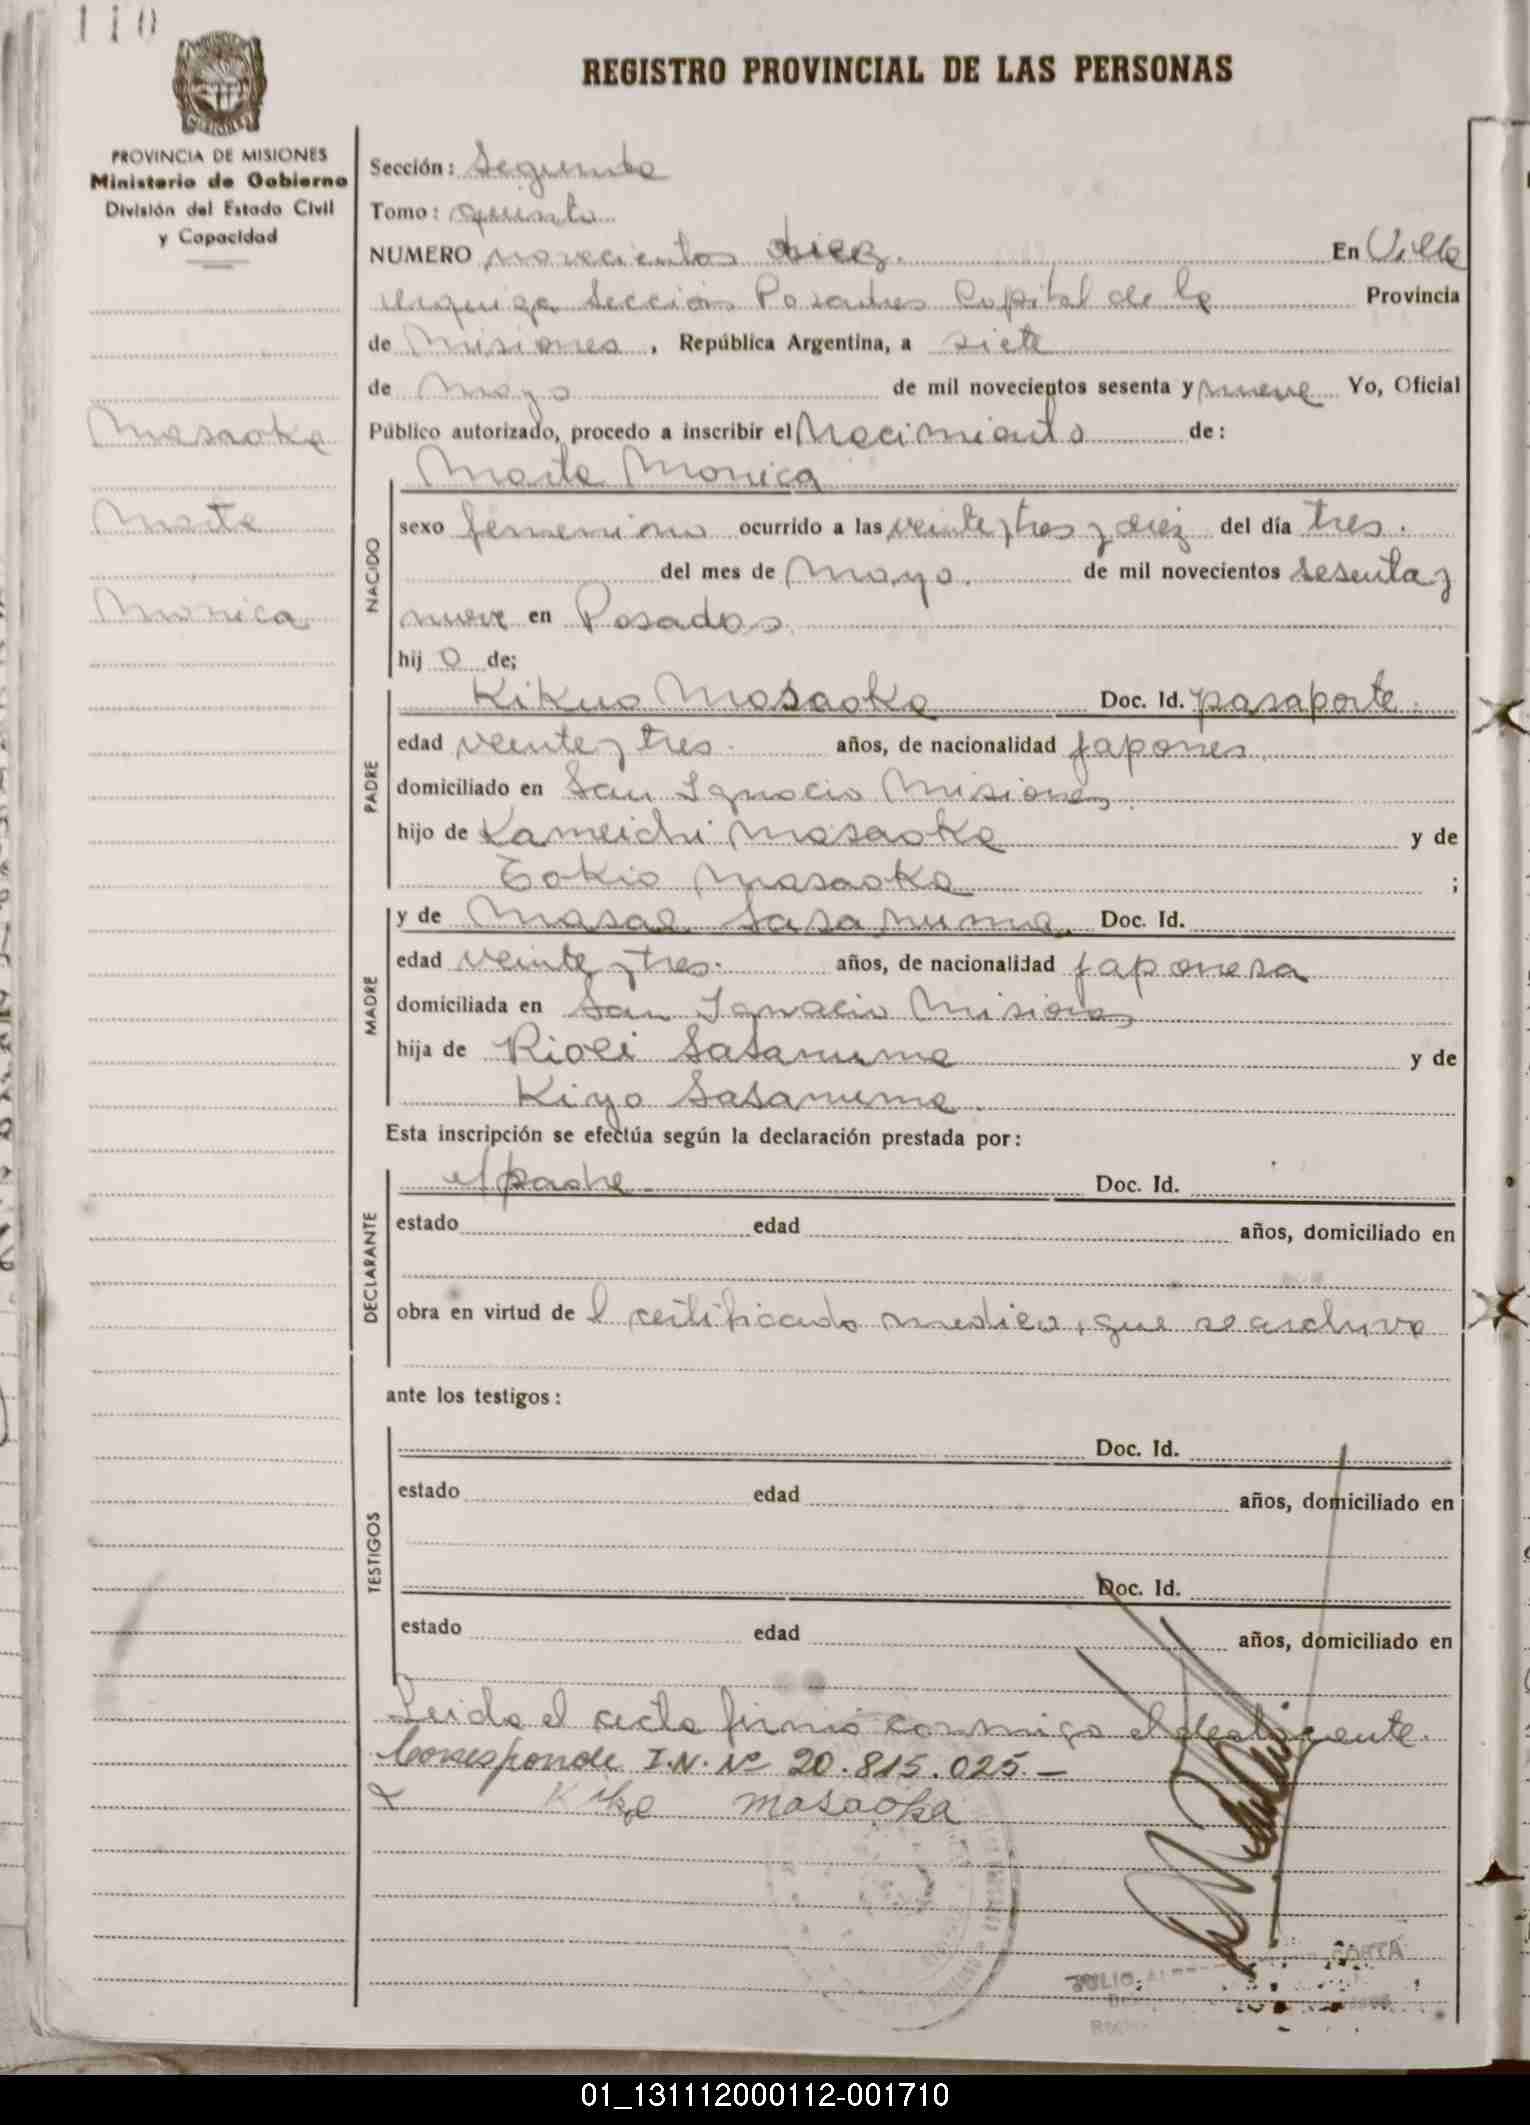 110
REGISTRO PROVINCIAL DE LAS PERSONAS
MISIONES
PROVINCIA DE MISIONES
Ministerio de Gobierno
División del Estado Civil
y Capacidad
Sección: Segunda
Tomo: quinto
NUMERO novecientos diez. En Villa
urquiza Sección Posadas Capital de la Provincia
de Misiones, República Argentina, a siete
de Mayo de mil novecientos sesenta y nueve Yo, Oficial
Masaoka
Público autorizado, procedo a inscribir el Nacimiento de:
Marta Monica
Marta
Monica
NACIDO
sexo femenino ocurrido a las veinte y tres y diez del día tres.
del mes de Mayo. de mil novecientos sesenta y
nueve en Posadas
hij a de;
PADRE
Kikuo Masaoka Doc. Id. pasaporte.
edad veinte y tres. años, de nacionalidad japones
domiciliado en San Ignacio Misiones.
hijo de Kameichi Masaoka y de
Tokio Masaoka ;
MADRE
y de Masae Sasanuma. Doc. Id.
edad veinte y tres. años, de nacionalidad japonesa
domiciliada en San Ignacio Misiones
hija de Sasanuma y de
Kiyo Sasanuma.
Esta inscripción se efectúa según la declaración prestada por:
DECLARANTE
el padre Doc. Id.
estado edad años, domiciliado en
obra en virtud de l certificado medico, que se archiva
ante los testigos:
TESTIGOS
Doc. Id.
estado edad años, domiciliado en
Doc. Id.
estado edad años, domiciliado en
Leida el acta firmó conmigo el
Corresponde I.N. Nº 20.815.025.—
x masaoka
JULIO
01_131112000112-001710